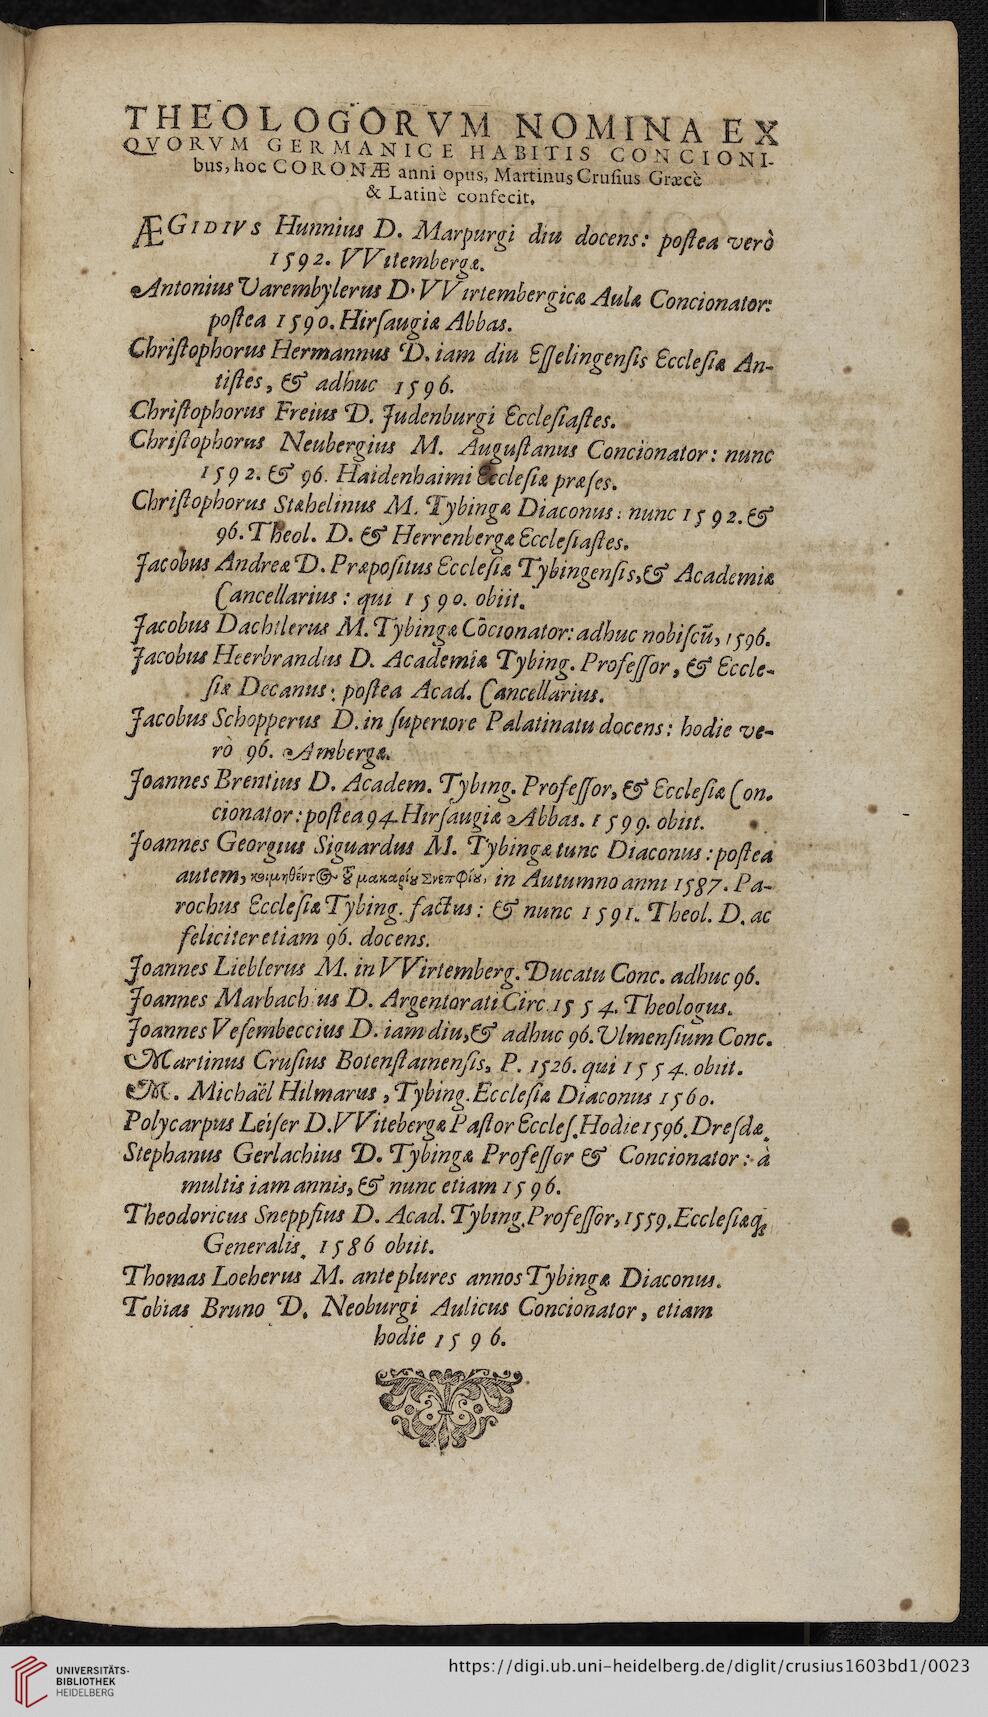 THEOLOGORVM NOMINA EX
QVORVM GERMANICE HABITIS CONCIONI-
bus, hoc CORONÆ anni opus, Martinus Crusius Græcè
& Latinè confecit.
ÆGIDIVS Hunnius D. Marpurgi diu docens: postea verò
1592. VVitembergæ.
Antonius Varembylerus D. VVirtembergicæ Aulæ Concionator:
postea 1590. Hirsaugiæ Abbas.
Christophorus Hermannus D. iam diu Esselingensis Ecclesiæ An-
tistes, & adhuc 1596.
Christophorus Freius D. Judenburgi Ecclesiastes.
Christophorus Neubergius M. Augustanus Concionator: nunc
1592. & 96. Haidenhaimi Ecclesiæ præses.
Christophorus Stæhelinus M. Tybingæ Diaconus: nunc 1592. &
96. Theol. D. & Herrenbergæ Ecclesiastes.
Jacobus Andreæ D. Præpositus Ecclesiæ Tybingensis, & Academiæ
Cancellarius: qui 1590. obiit.
Jacobus Dachtlerus M. Tybingæ Cōcionator: adhuc nobiscū, 1596.
Jacobus Heerbrandus D. Academiæ Tybing. Professor, & Eccle-
siæ Decanus: postea Acad. Cancellarius.
Jacobus Schopperus D. in superiore Palatinatu docens: hodie ve-
rò 96. Ambergæ.
Joannes Brentius D. Academ. Tybing. Professor, & Ecclesiæ Con-
cionator: postea 94. Hirsaugiæ Abbas. 1599. obiit.
Joannes Georgius Siguardus M. Tybingæ tunc Diaconus: postea
autem, κοιμηθέντος τοῦ μακαρίου Σνεπφίου, in Autumno anni 1587. Pa-
rochus Ecclesiæ Tybing. factus: & nunc 1591. Theol. D. ac
feliciter etiam 96. docens.
Joannes Lieblerus M. in VVirtemberg. Ducatu Conc. adhuc 96.
Joannes Marbachius D. Argentorati Circ. 1554. Theologus.
Joannes Vesembeccius D. iam diu, & adhuc 96. Vlmensium Conc.
Martinus Crusius Botenstainensis, P. 1526. qui 1554. obiit.
M. Michaël Hilmarus, Tybing. Ecclesiæ Diaconus 1560.
Polycarpus Leiser D. VVitebergæ Pastor Eccles. Hodie 1596. Dresdæ.
Stephanus Gerlachius D. Tybingæ Professor & Concionator: à
multis iam annis, & nunc etiam 1596.
Theodoricus Sneppfius D. Acad. Tybing. Professor, 1559. Ecclesiæq;
Generalis. 1586 obiit.
Thomas Loeherus M. ante plures annos Tybingæ Diaconus.
Tobias Bruno D. Neoburgi Aulicus Concionator, etiam
hodie 1596.
https://digi.ub.uni-heidelberg.de/diglit/crusius1603bd1/0023
UNIVERSITÄTS-
BIBLIOTHEK
HEIDELBERG